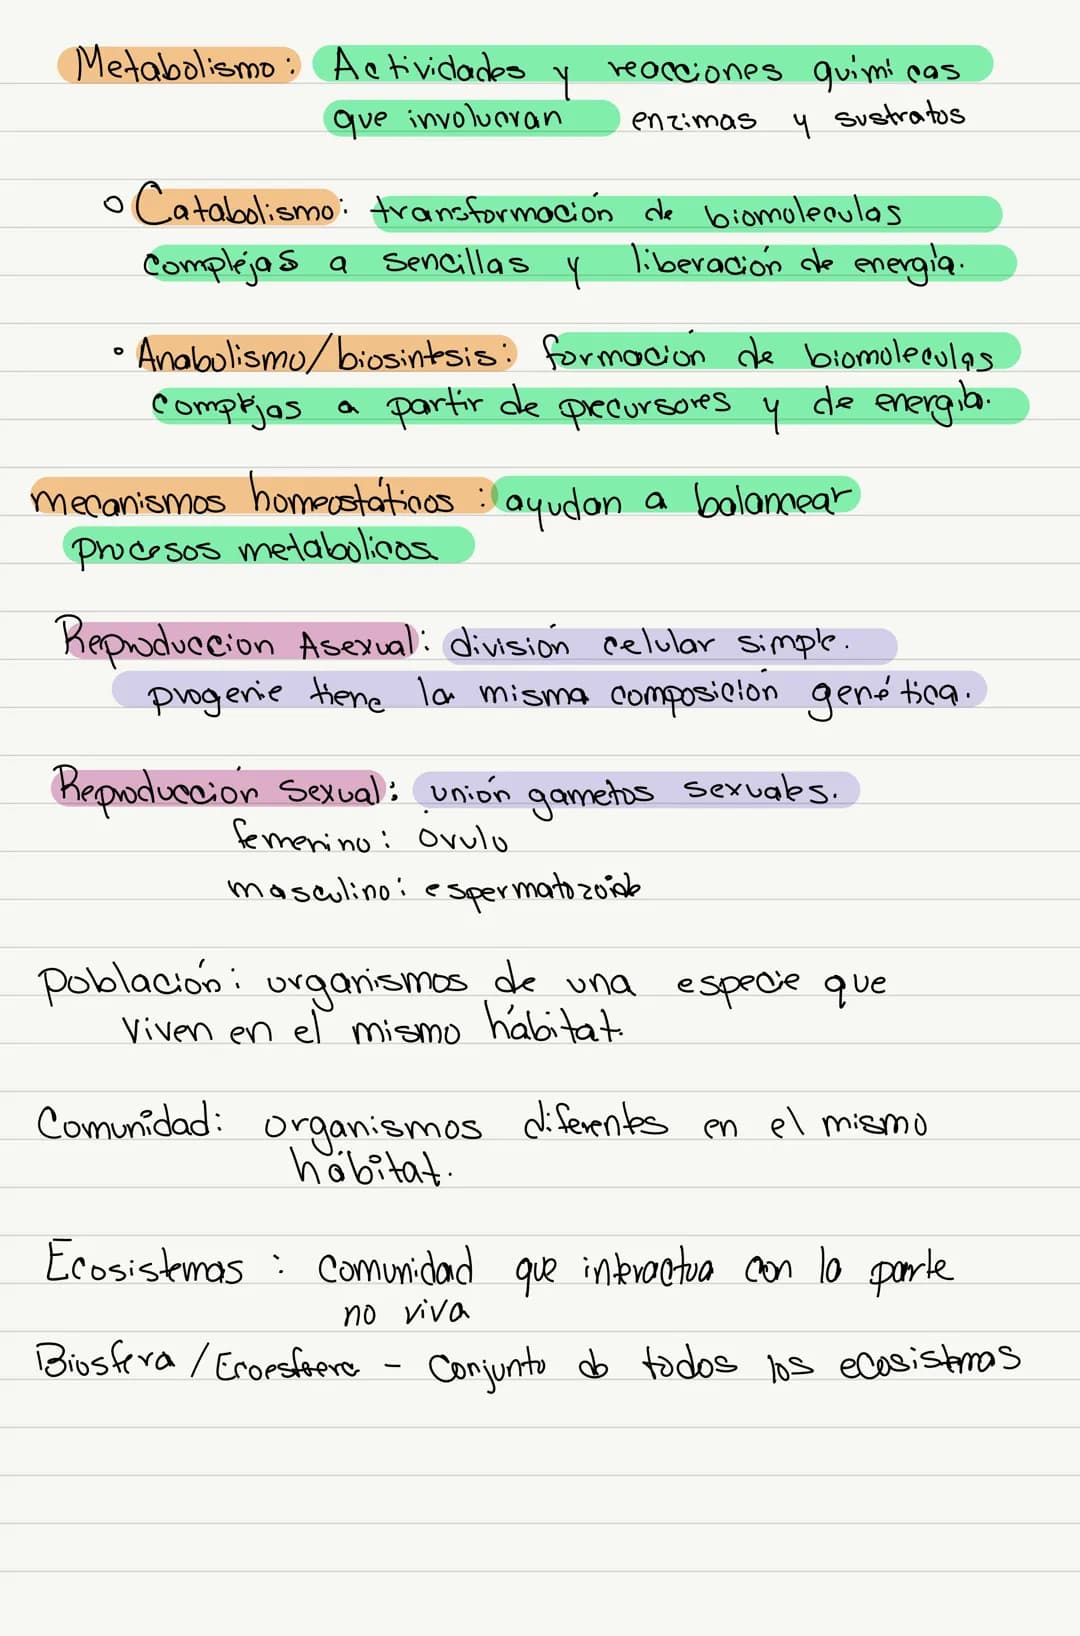 Metabolismo: Actividades y reacciones quimicas
que involucran enzimas y sustratos
Catabolismo: transformación de biomoleculas
complejas a sencillas y liberación de energía.
Anabolismo/biosintesis: formación de biomoleculas
complejas a partir de precursores y de energía.
mecanismos homeostáticos: ayudan a balancear
procesos metabolicos
Reproduccion Asexual: división celular simple.
progenie tiene la misma composición genética.
Reproducción Sexual: unión gametos sexuales.
femenino: óvulo
masculino: espermatozoide
población: organismos de una especie que
viven en el mismo hábitat.
Comunidad: organismos diferentes en el mismo
hábitat.
Ecosistemas: Comunidad que interactua con la parte
no viva
Biosfera / - Conjunto de todos los ecosistemas